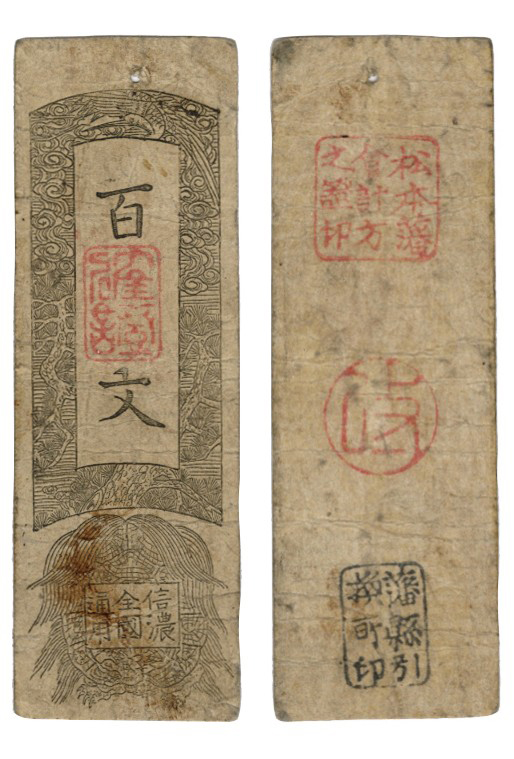 百文
信濃
全國
通用
松本藩
會計方
之證印
藩縣引
換所印